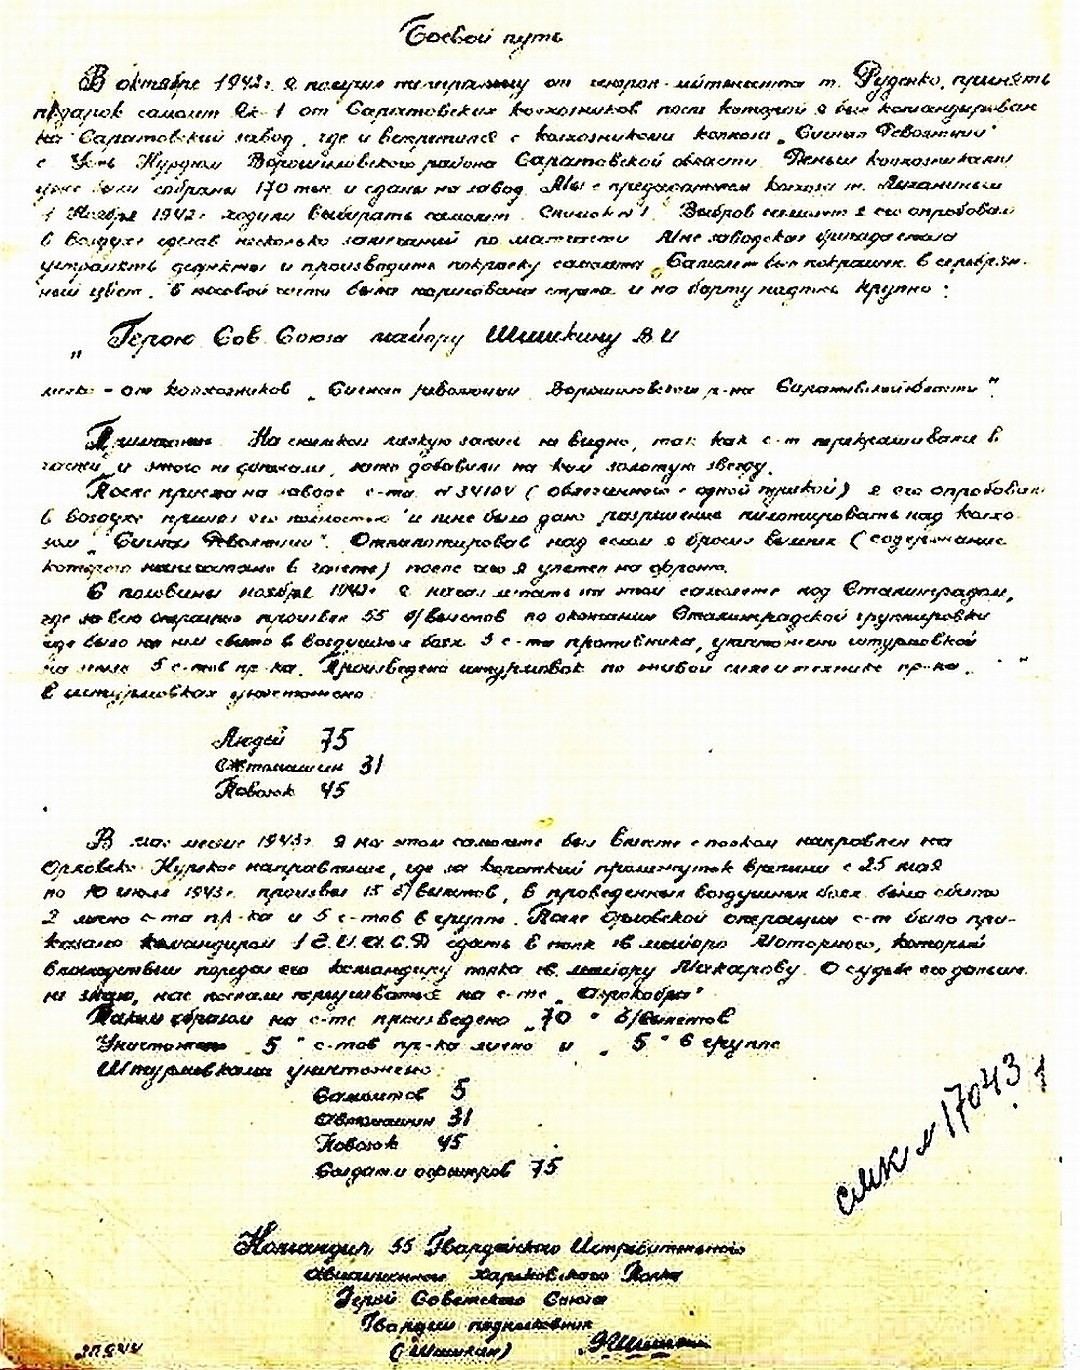 Боевой путь
В октябре 1942г. я получил телеграмму от генерал-лейтенанта т. Руденко, принять
подарок самолет Як-1 от Саратовских колхозников после которой я был командирован
на Саратовский завод, где и встретился с колхозниками колхоза „Сигнал Революции"
с Усть Курдюм Ворошиловского района Саратовской области. Деньги колхозниками
уже были собраны 170 тыс. и сданы на завод. Мы с председателем колхоза т.
1 Ноября 1942г. ходили выбирать самолет. Снимок №1. Выбрав самолет я его опробовал
в воздухе сделав несколько замечаний по матчасти. Мне заводская бригада стала
устранять дефекты и производить покраску самолета. Самолет был покрашен в серебрян-
ный цвет. В носовой части была нарисована стрела и на борту надпись крупно:
„Герою Сов Союза майору Шишкину В И
- от колхозников „Сигнал революции Ворошиловского р-на Саратовской области"
Примечание На снимках мелкую запись не видно, так как с-т перекрашивали в
части и этого не сделали, зато добавили на нем золотую звезду.
После приема на заводе с-та №34104 (облегченного с одной пушкой) я его опробовал
в воздухе принял его полностью и мне было дано разрешение пилотировать над колхо-
зом „Сигнал Революции". Отпилотировав над селом я бросил вымпел (содержание
которого напечатано в газете) после чего я улетел на фронт.
С половины ноября 1942г. я начал летать на этом самолете под Сталинградом,
где за всю операцию произвел 55 б/вылетов по окончании Сталинградской группировки
где было на нем сбито в воздушных боях 3 с-та противника, уничтожено штурмовкой
на земле 5 с-тов пр-ка. Произведено штурмовок по живой силе и технике пр-ка. " "
В штурмовках уничтожено:
Людей 75
Автомашин 31
Повозок 45
В мае месяце 1943г. я на этом самолете был вместе с полком направлен на
Орловско-Курское направление, где за короткий промежуток времени с 25 мая
по 10 июля 1943г. произвел 15 б/вылетов, в проведенных воздушных боях было сбито
2 лично с-та пр-ка и 5 с-тов в группе. После Орловской операции с-т было при-
казано командиром 1 Г.И.А.Д сдать в полк гв. майора Моторного, который
впоследствии передал его командиру полка гв. майору Макарову. О судьбе его дальше
не знаю, нас послали переучиваться на с-те „Аэрокобра"
Таким образом на с-те произведено „70" б/вылетов
Уничтожено „5" с-тов пр-ка лично и „5" в группе
Штурмовками уничтожено:
Самолетов 5
Автомашин 31
Повозок 45
Солдат и офицеров 75
СМК № 17043 1
Командир 55 Гвардейского Истребительного
Авиационного Харьковского Полка
Герой Советского Союза
Гвардии подполковник
(Шишкин)